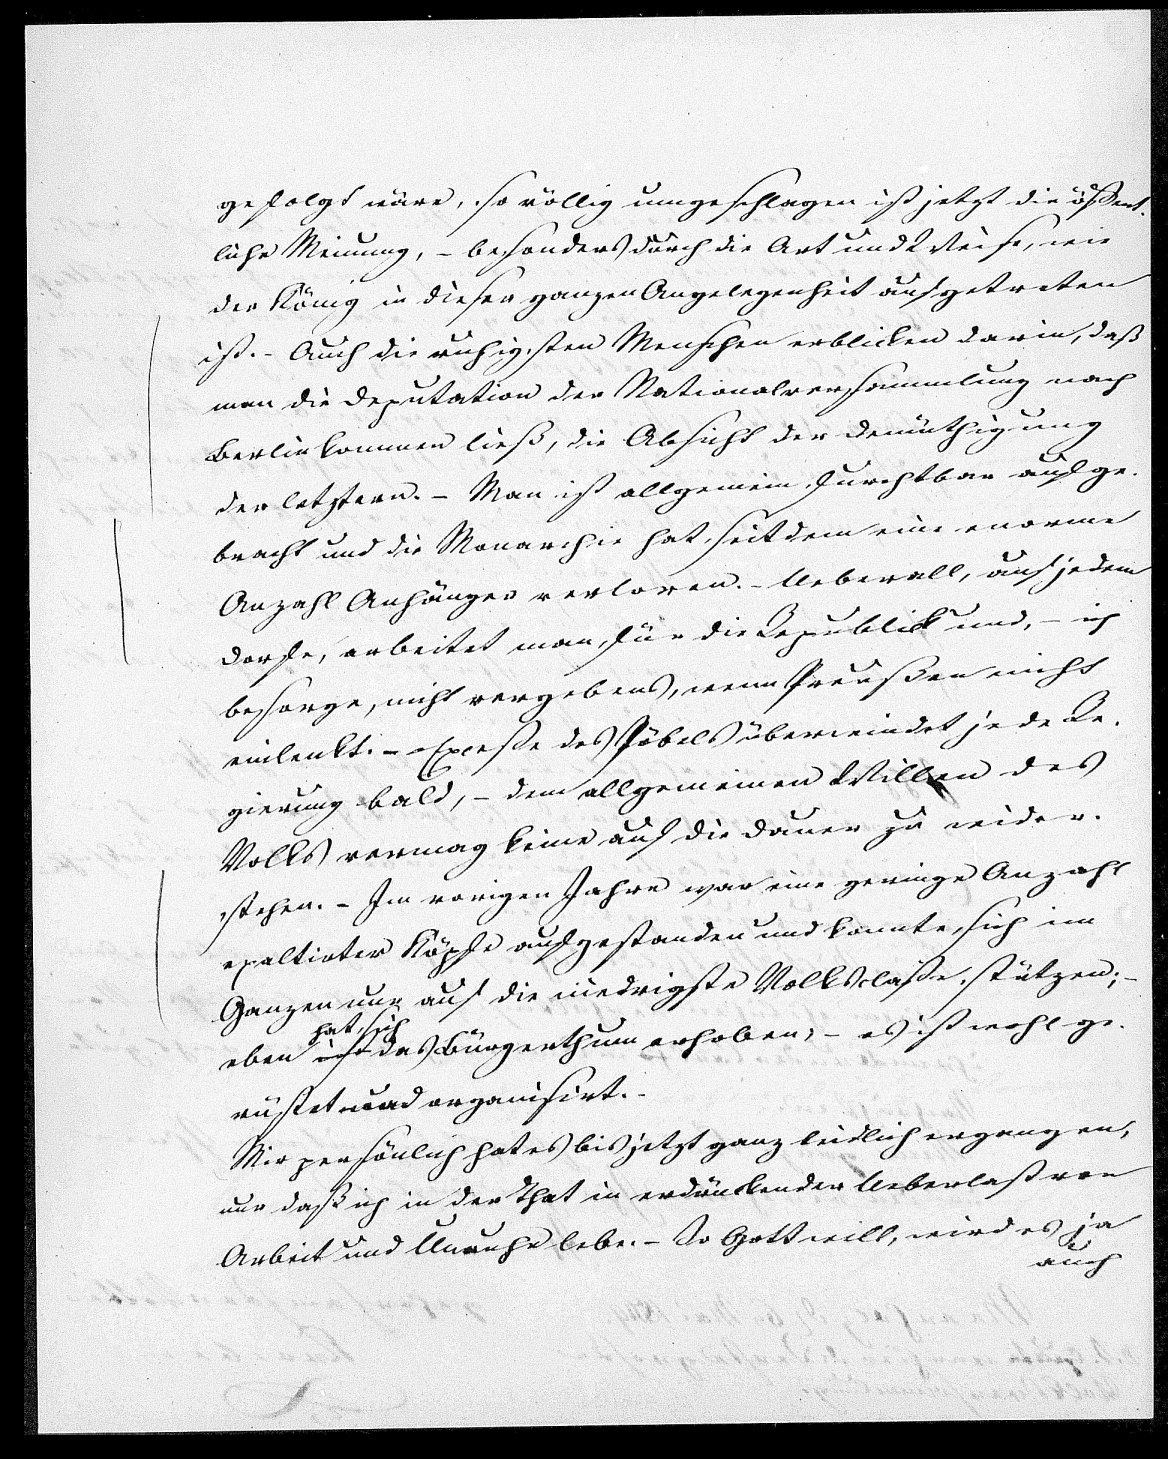 gefolgt wäre, so völlig umgeschlagen ist jetzt die öffent-
liche Meinung, – besonders durch die Art und Weise, wie
der König in dieser ganzen Angelegenheit aufgetreten
ist. – Auch die ruhigsten Menschen erblicken darin, daß
man die Deputation der Nationalversammlung nach
Berlin kommen ließ, die Absicht der Demüthigung
der letztern. – Man ist allgemein furchtbar aufge-
bracht und die Monarchie hat seitdem eine enorme
Anzahl Anhänger verloren. – Ueberall, auf jedem
Dorfe, arbeitet man für die Republick und, – ich
besorge, nicht vergebens, wenn Preußen nicht
einlenkt. – Excesse des Pöbels überwindet jede Re-
gierung bald, – dem allgemeinen Willen des
Volks vermag keine auf die Dauer zu wider-
stehen. – Im vorigen Jahre war eine geringe Anzahl
exaltirter Köpfe aufgestanden und konnte sich im
Ganzen nur auf die niedrigste Volksclasse stützen; –
hat sich
eben ist das Bürgerthum erhoben; – es ist wohl ge-
rüstet und organisirt. –
Mir persönlich hat es bis jetzt ganz leidlich ergangen,
nur daß ich in der That in erdrückender Ueberlast von
Arbeit und Unruhe lebe. – So Gott will, wird es ja
auch